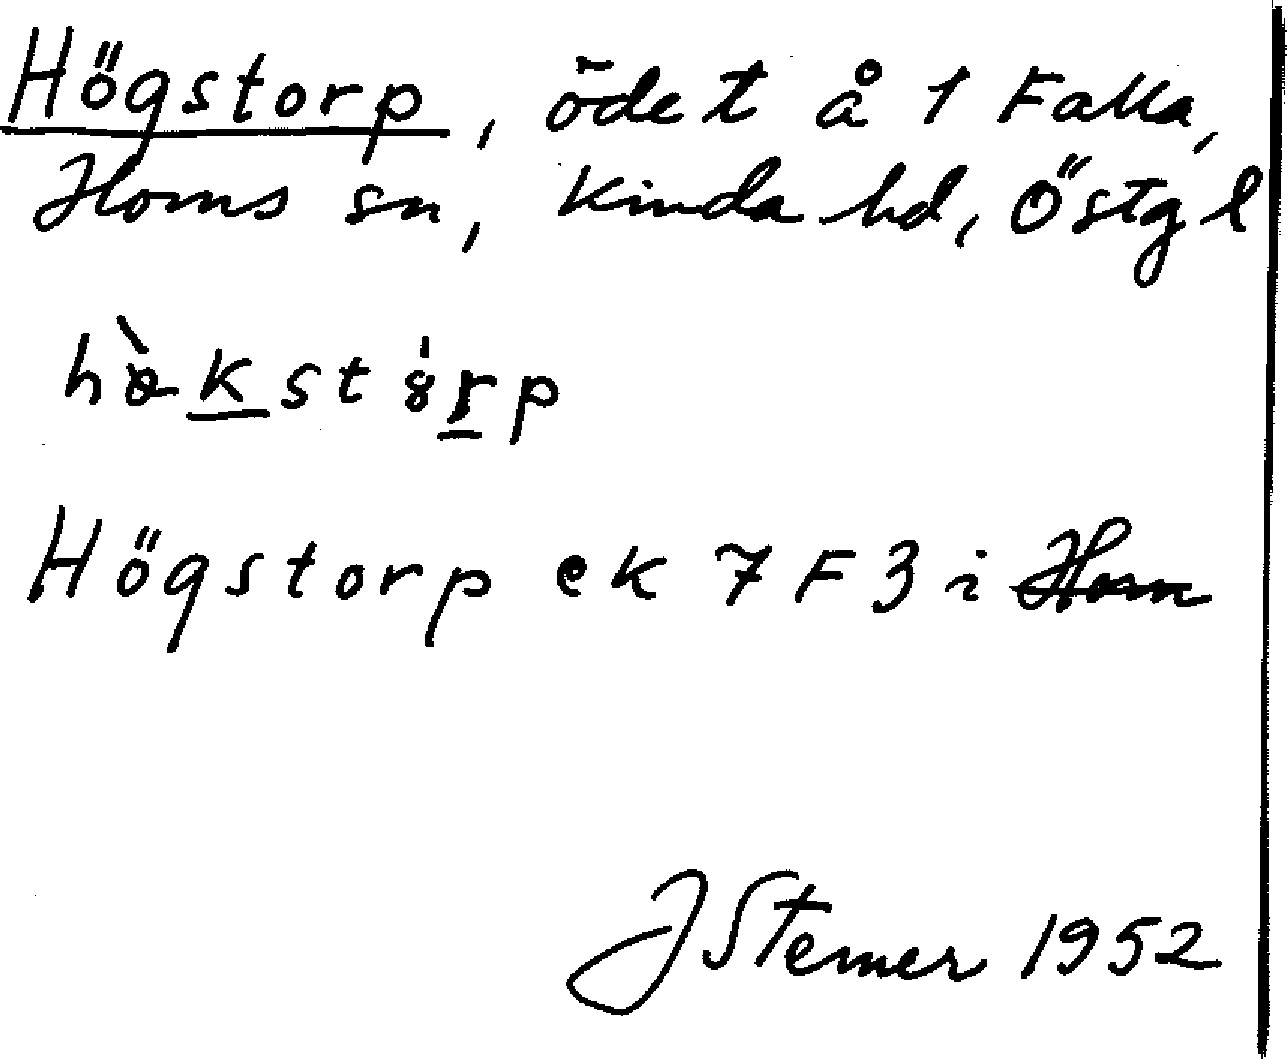 Högstorp, öde t å 1 Falla,
Horns sn, Kinda hd, Östgl
hö̀kstȯrp
Högstorp ek 7 F 3 i Horn
J Sterner 1952